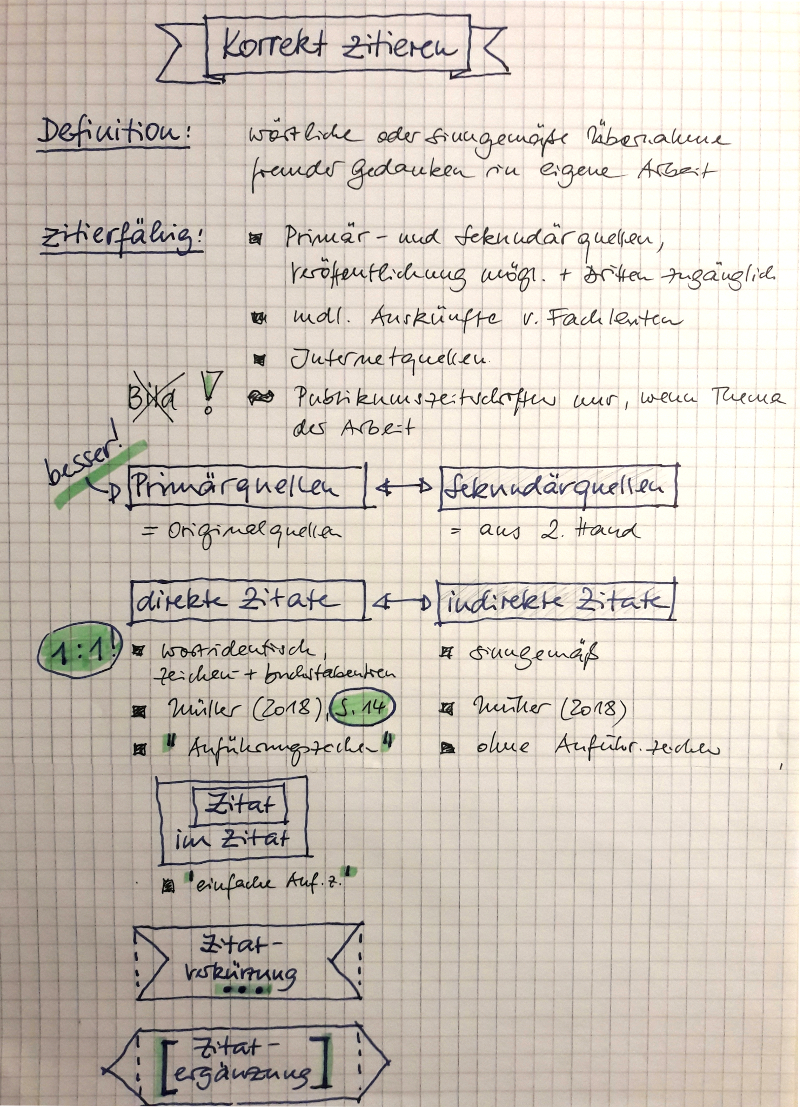 Korrekt zitieren
Definition:
wörtliche oder sinngemäße Übernahme
fremder Gedanken in eigene Arbeit
zitierfähig:
Primär- und Sekundärquellen,
Veröffentlichung mögl. + Dritten zugänglich
mdl. Auskünfte v. Fachleuten
Internetquellen
Bild !
Publikumszeitschriften nur, wenn Thema
der Arbeit
besser!
Primärquellen ↔ Sekundärquellen
= Originalquellen
= aus 2. Hand
direkte Zitate ↔ indirekte Zitate
1:1!
wortidentisch,
zeichen- + buchstabentreu
sinngemäß
Müller (2018), S. 14
Müller (2018)
"Anführungszeichen"
ohne Anführ.zeichen
Zitat
im Zitat
'einfache Anf.z.'
Zitat-
verkürzung
...
[Zitat-
ergänzung]